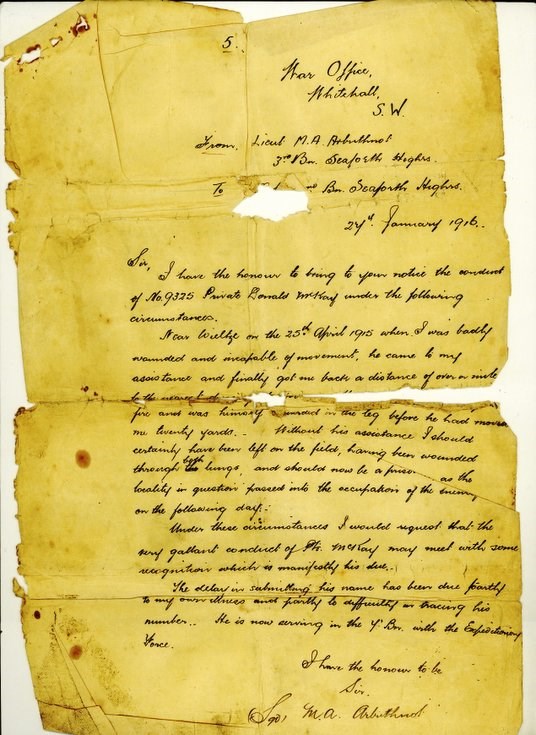 5.
War Office,
Whitehall,
S.W.
From, Lieut M.A. Arbuthnot
3rd Bn. Seaforth Highrs.
To Bn. Seaforth Highrs.
January 1916.
Sir,
I have the honour to bring to your notice the conduct
of No. 9325 Private Donald McKay under the following
circumstances.
Near Wieltje on the 25th April 1915 when I was badly
wounded and incapable of movement, he came to my
assistance and finally got me back a distance of over a mile
to the nearest
fire and was himself wounded in the leg before he had
me twenty yards. - Without his assistance I should
certainly have been left on the field, having been wounded
through both lungs, and should now be a as the
locality in question passed into the occupation of the enemy
on the following day. -
Under these circumstances I would request that the
very gallant conduct of Pte. McKay may meet with some
recognition which is manifestly his due. .
The delay in submitting his name has been due partly
to my own illness and partly to difficulty in tracing his
number. . He is now serving in the Bn. with the Expeditionary
Force.
I have the honour to be
Sir.
(Sgd) M.A. Arbuthnot